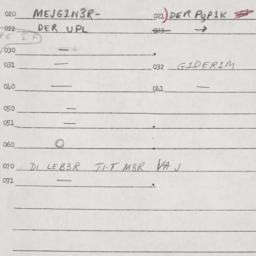 020 MEJGIN3R- 021) DER PYPIK
022 DER UPL →
030 — .
031 — 032 GIDERIM
040 — 041 —
050 —
051 — .
060 O
070 DI LEB3R TI-T M3R VAJ
071 — .